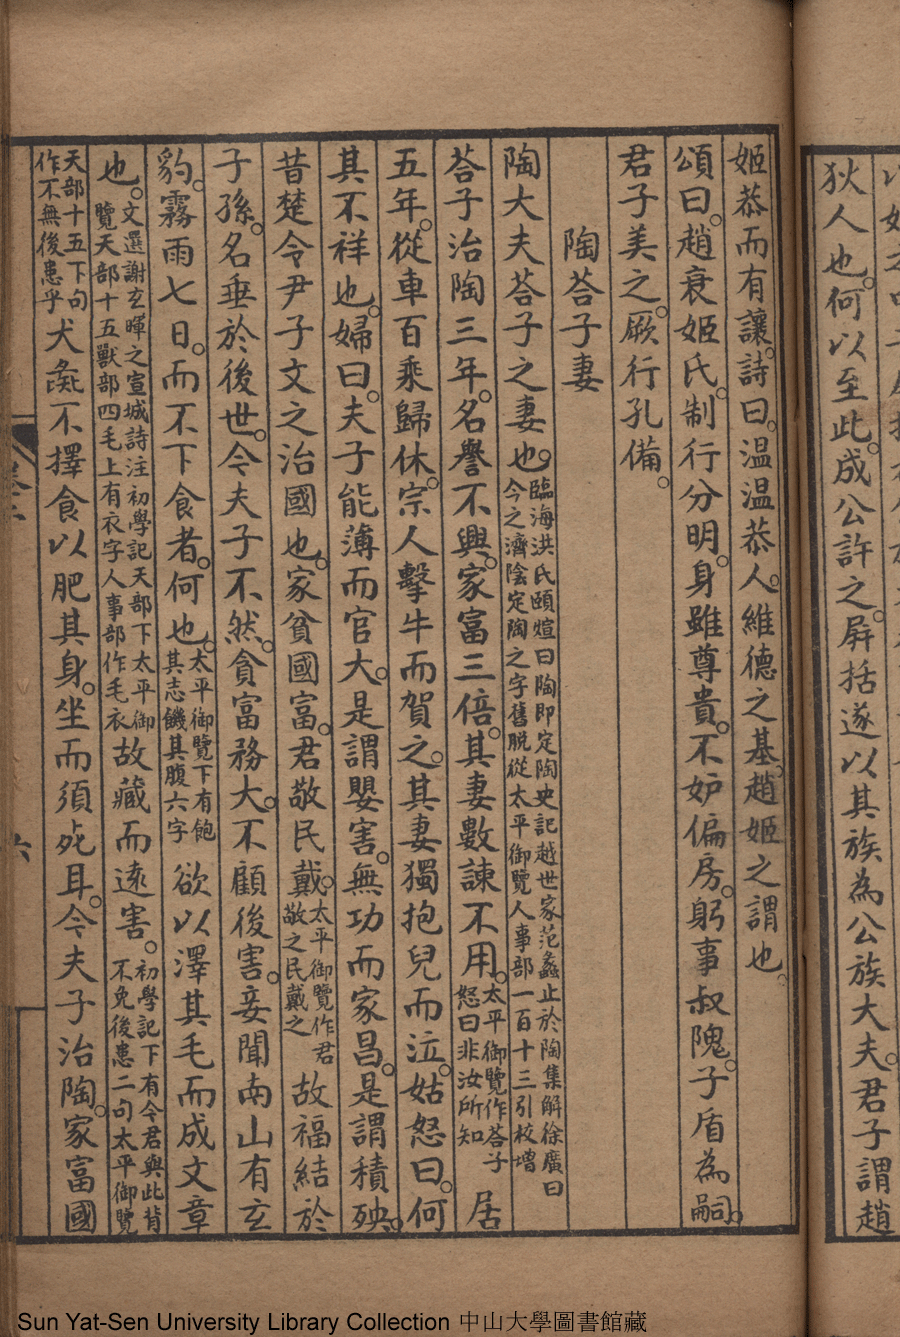 狄人也。何以至此。成公許之。屏括遂以其族為公族大夫。君子謂趙
姬恭而有讓。詩曰。温温恭人。維德之基。趙姬之謂也。
頌曰。趙衰姬氏。制行分明。身雖尊貴。不妒偏房。躬事叔隗。子盾為嗣。
君子美之。厥行孔備。
陶荅子妻
陶大夫荅子之妻也。臨海洪氏頤煊曰陶即定陶史記越世家范蠡止於陶集解徐廣曰今之濟陰定陶之字舊脱從太平御覽人事部一百十三引校增
荅子治陶三年。名譽不興。家富三倍。其妻數諫不用。太平御覽作荅子怒曰非汝所知居
五年。從車百乘歸休。宗人擊牛而賀之。其妻獨抱兒而泣。姑怒曰。何
其不祥也。婦曰。夫子能薄而官大。是謂嬰害。無功而家昌。是謂積殃。
昔楚令尹子文之治國也。家貧國富。君敬民戴。太平御覽作君敬之民戴之故福結於
子孫。名垂於後世。今夫子不然。貪富務大。不顧後害。妾聞南山有玄
豹。霧雨七日。而不下食者。何也。太平御覽下有飽其志饑其腹六字欲以澤其毛而成文章
也。文選謝玄暉之宣城詩注初學記天部下太平御覽天部十五獸部四毛上有衣字人事部作毛衣故藏而遠害。初學記下有今君與此背不免後患二句太平御覽
天部十五下句作不無後患乎犬彘不擇食以肥其身。坐而須死耳。今夫子治陶。家富國
六
Sun Yat-Sen University Library Collection 中山大學圖書館藏